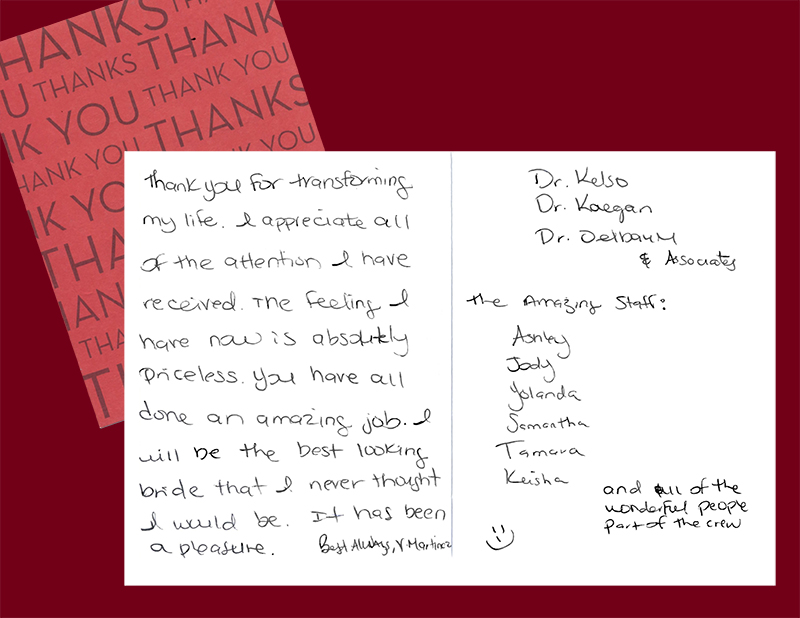 THANKS THA
HANKS THANK
U THANKS THANK YOU
NK YOU THANKS
HANK YOU THANK YOU
NK YO
THA
HANK
THA
T
Thank you for transforming
my life. I appreciate all
of the attention I have
received. The feeling I
have now is absolutely
priceless. You have all
done an amazing job. I
will be the best looking
bride that I never thought
I would be. It has been
a pleasure.
Best Always, V Martinez
Dr. Kelso
Dr. Kaegan
Dr. Delbaum
& Associates
the Amazing Staff:
Ashley
Jody
Yolanda
Samantha
Tamara
Keisha
and all of the
wonderful people
part of the crew